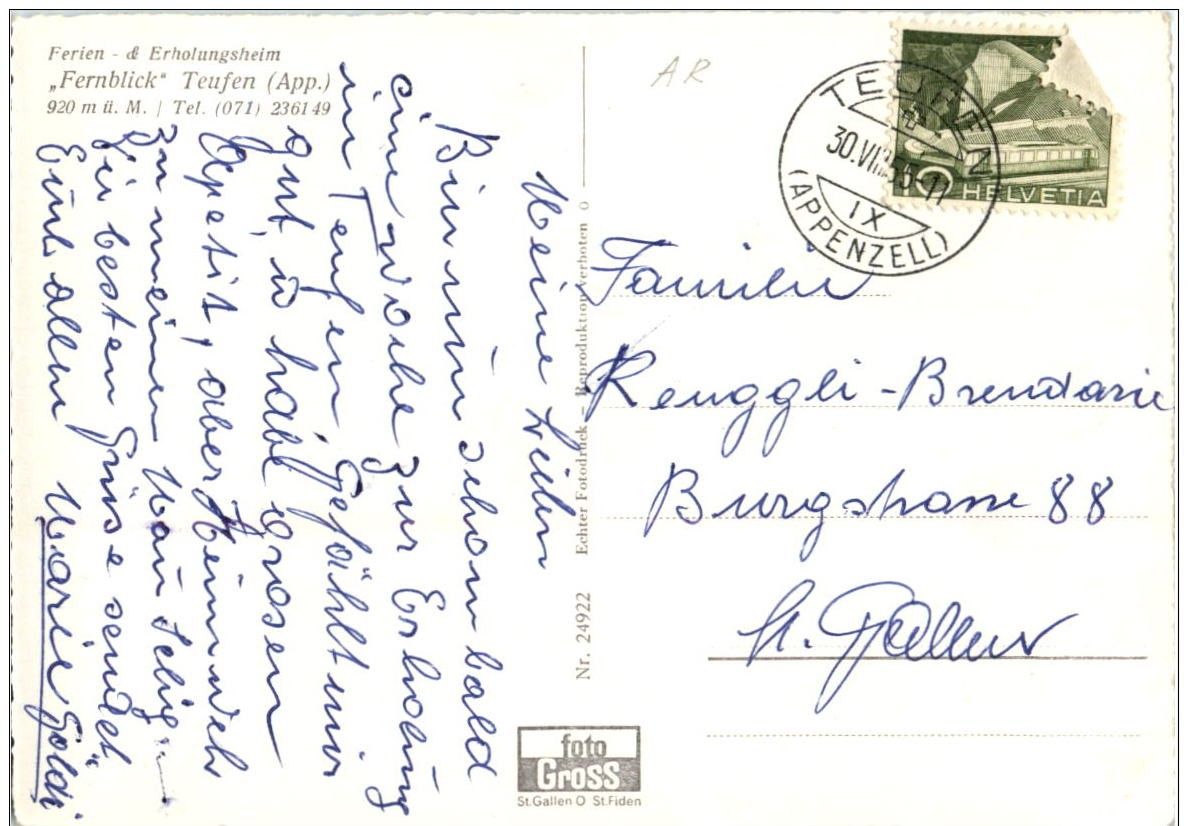 Ferien - & Erholungsheim
„Fernblick“ Teufen (App.)
920 m ü. M. | Tel. (071) 2361 49
AR
TEUFEN
30.VIII.
IX
(APPENZELL)
HELVETIA
Meine Lieben
Bin nun schon bald
eine woche zur Erholung
in Teufen, Gefählt mir
gut, u habe grosen
Apetit, aber Heimweh
zu meinen Man Selig
Die besten Grüse sendet
Euch allen Marie Göldi
Familie
Renggli - Brendarie
Burgstrasse 88
St. Gallen
Nr. 24922 Echter Fotodruck – Reproduktion verboten o
foto
Gross
St. Gallen O St. Fiden